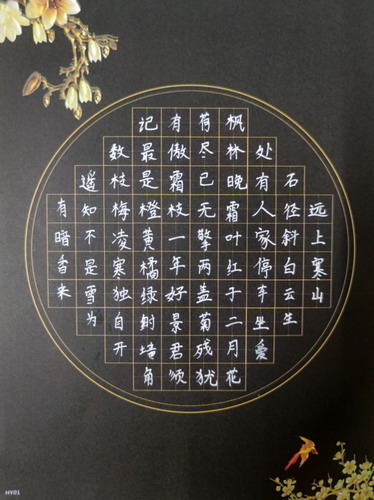 远上寒山
石径斜白云生
处有人家停车坐爱
枫林晚霜叶红于二月花
荷尽已无擎雨盖菊残犹
有傲霜枝一年好景君须
记最是橙黄橘绿时墙角
数枝梅凌寒独自开
遥知不是雪为
有暗香来
HY01